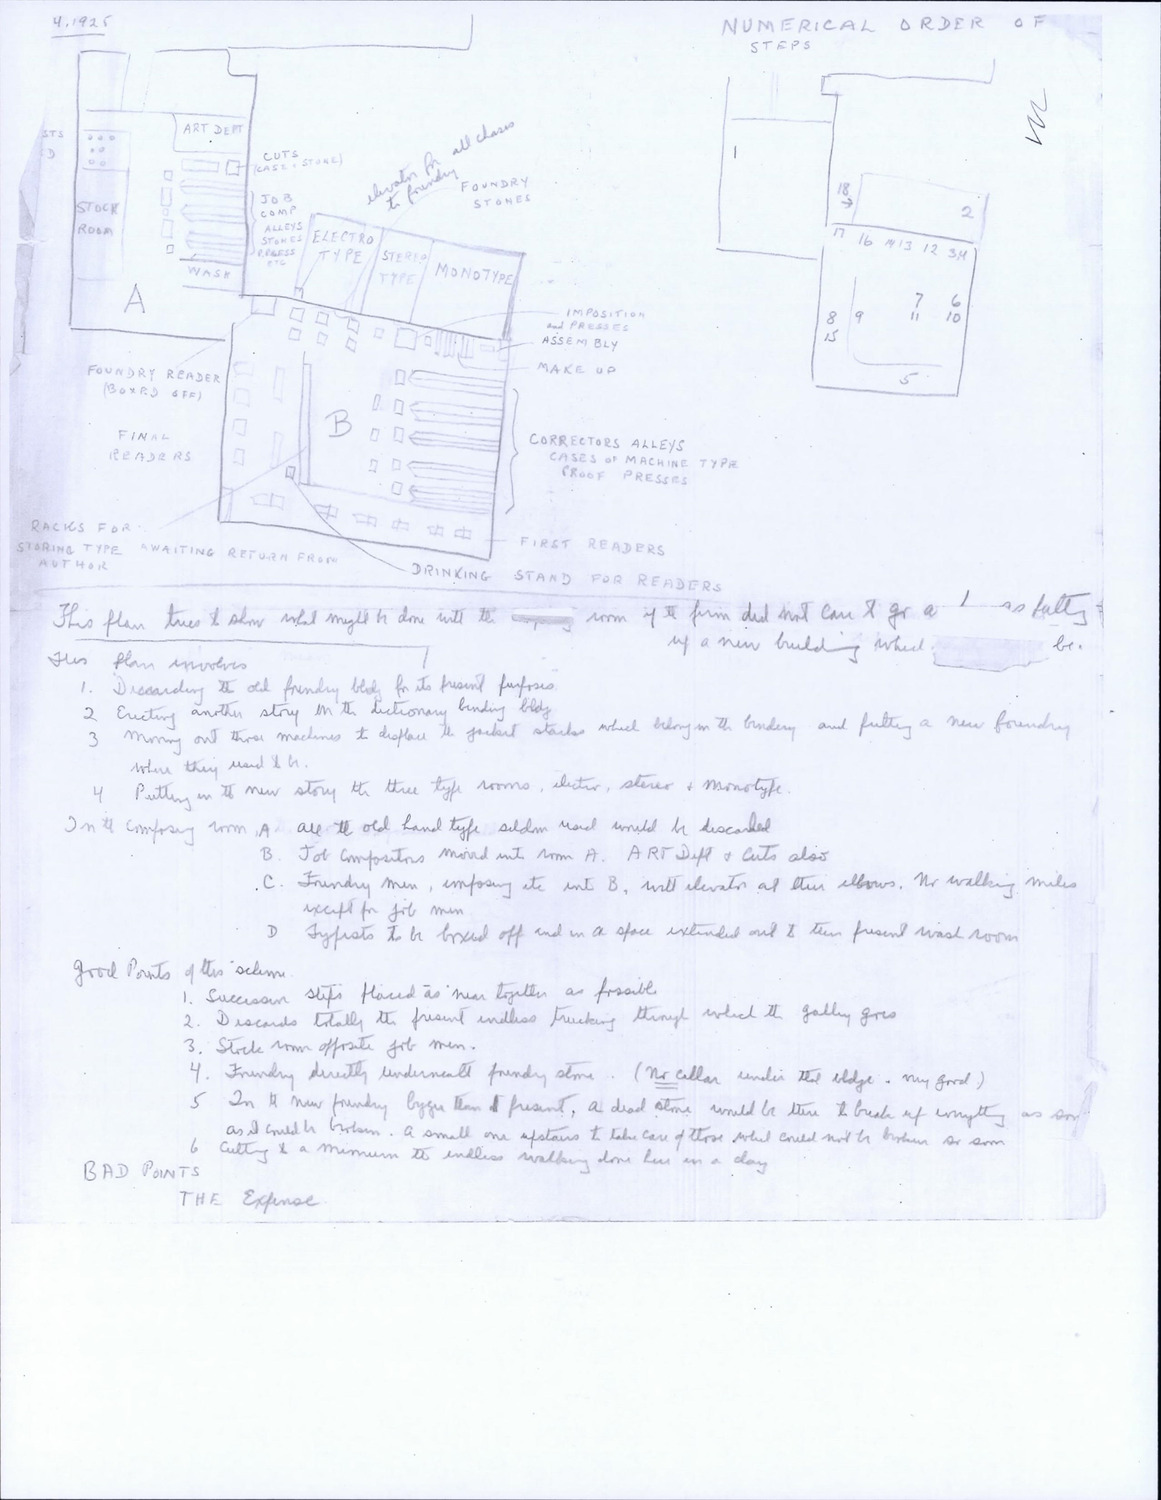 4.1925
NUMERICAL ORDER OF
STEPS
STS
D
ART DEPT
CUTS
(CASE + STONE)
elevator for all chases
to foundry
FOUNDRY
STONES
STOCK
ROOM
JOB
COMP
ALLEYS
STONES
PRESS
ETC
WASH
A
ELECTRO
TYPE
STEREO
TYPE
MONOTYPE
IMPOSITION
and PRESSES
ASSEMBLY
MAKE UP
FOUNDRY READER
(BOXED OFF)
FINAL
READERS
B
CORRECTORS ALLEYS
CASES of MACHINE TYPE
PROOF PRESSES
RACKS FOR
STORING TYPE AWAITING RETURN FROM
AUTHOR
FIRST READERS
DRINKING STAND FOR READERS
1
18
2
17 16 14 13 12 3,4
7 6
8 9 11 10
15
5
This plan tries to show what might be done with the room if the firm did not care to go as far as
up a new building which be.
This plan involves
1. Discarding the old foundry bldg for its present purposes.
2 Erecting another story on the dictionary binding bldg
3 Moving out those machines to displace the jacket stacks which belong in the bindery and putting a new foundry
where they used to be.
4 Putting in the new story the three type rooms, electro, stereo + monotype.
In the composing room, A all the old hand type seldom used would be discarded
B. Job Compositors moved into room A. ART Dept + Cuts also
C. Foundry men, imposing etc into B, with elevator at their elbows. No walking miles
except for job men
D Typists to be boxed off and in a space extended out to their present wash room
Good Points of this scheme.
1. Successive steps placed as near together as possible
2. Discards totally the present endless trucking through which the galley goes
3. Stock room opposite job men.
4. Foundry directly underneath foundry stone. (No cellar under that bldg. very good)
5 In the new foundry bigger than at present, a dead stone would be there to break up everything as soon
as it could be broken. A small one upstairs to take care of those what could not be broken so soon
6 Cutting to a minimum the endless walking done here in a day
BAD POINTS
THE Expense